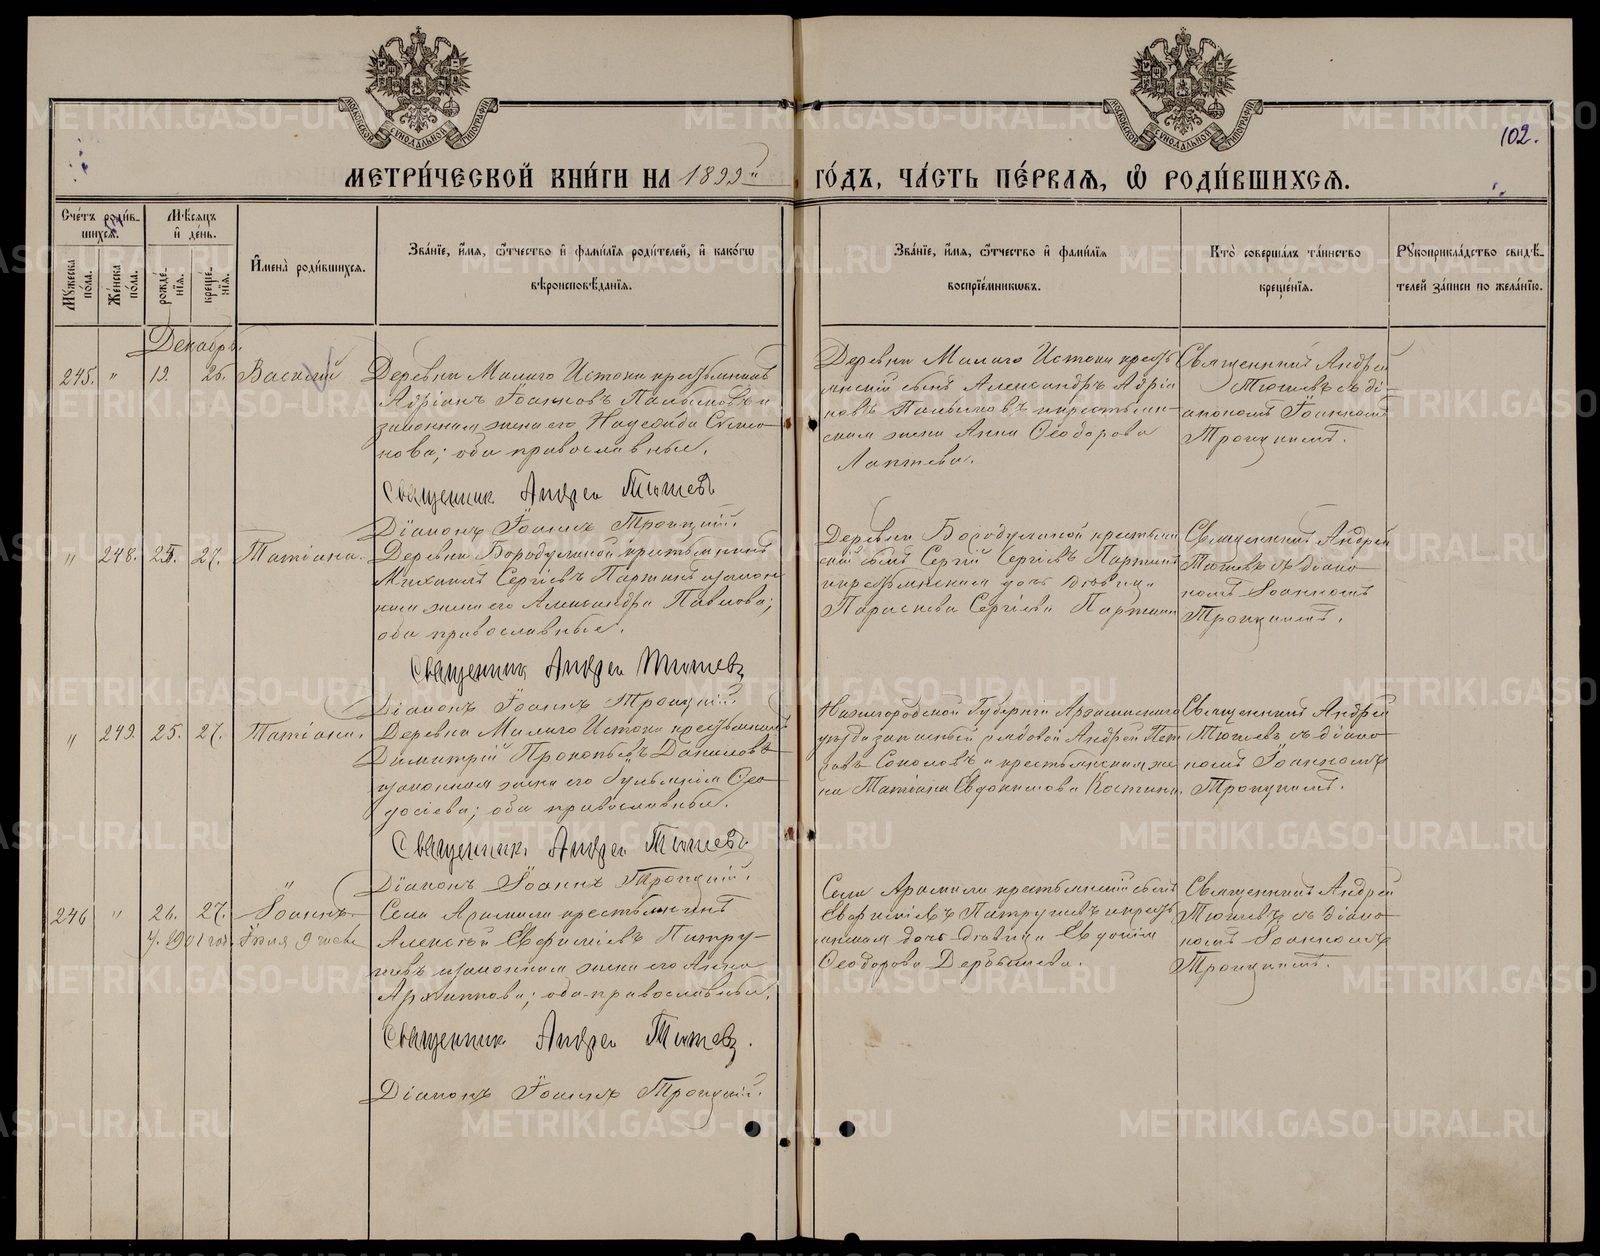 МОСКОВСКОЙ СѴНОДАЛЬНОЙ ТИПОГРАФІИ
МОСКОВСКОЙ СѴНОДАЛЬНОЙ ТИПОГРАФІИ
102.
МЕТРИ́ЧЕСКОЙ КНИ́ГИ НА 1899й ГО́ДЪ, ЧА́СТЬ ПЕ́РВАЯ, Ѽ РОДИ́ВШИХСЯ.
Сче́тъ роди́в-
шихся.
Мꙋжеска по́ла.
Же́нска по́ла.
Мѣ́сяцъ и҆ де́нь.
рожде́нїя.
креще́нїя.
И҆мена̀ роди́вшихся.
Зва́нїе, и҆́мя, ѻ҆́тчество и҆ фами́лїя роди́телей, и҆ како́гѡ
вѣроисповѣ́данїя.
Зва́нїе, и҆́мя, ѻ҆́тчество и҆ фами́лїя
восприе́мниковъ.
Кто̀ соверша́лъ та́инство
креще́нїя.
Рꙋкоприкла́дство свидѣ́-
телей за́писи по жела́нїю.
Декабрь.
245. " 19. 26. Василій
Деревни Малаго Истока крестьянинъ
Адріанъ Іоанновъ Пальмовъ и
законная жена его Надежда Симео-
нова; оба православные.
Священник Андрей Тюшев
Діаконъ Іоаннъ Троицкій.
Деревни Малаго Истока кресть-
янскій сынъ Александръ Адріа-
новъ Пальмовъ и крестьян-
ская жена Анна Ѳеодорова
Лаптева.
Священникъ Андрей
Тюшевъ съ ді-
акономъ Іоанномъ
Троицкимъ.
" 248. 25. 27. Татіана.
Деревни Бородулиной крестьянинъ
Михаилъ Сергіевъ Паршинъ и закон-
ная жена его Александра Павлова;
оба православные.
Священник Андрей Тюшев
Діаконъ Іоаннъ Троицкій.
Деревни Бородулиной крестьян-
скій сынъ Сергій Сергіевъ Паршинъ
и крестьянская дочь дѣвица
Параскева Сергіева Паршина
Священникъ Андрей
Тюшевъ съ діако-
номъ Іоанномъ
Троицкимъ.
" 249. 25. 27. Татіана.
Деревни Малаго Истока крестьянинъ
Димитрій Прокопьевъ Даниловъ и
законная жена его Гульпнія Ѳео-
досіева; оба православные.
Священник Андрей Тюшев
Діаконъ Іоаннъ Троицкій.
Нижегородской Губерніи Арзамаскаго
уѣзда запасный рядовой Андрей Пет-
ровъ Соколовъ и крестьянская же-
на Татіана Евдокимова Костина.
Священникъ Андрей
Тюшевъ съ діако-
номъ Іоанномъ
Троицкимъ.
246 " 26. 27. Іоаннъ.
У. 1901 год. Іюля 9 дня
Села Арамили крестьянинъ
Алексѣй Евфиміевъ Патру-
шевъ и законная жена его Анна
Архиппова; оба православные.
Священник Андрей Тюшев.
Діаконъ Іоаннъ Троицкій.
Села Арамили крестьянскій сынъ
Патрушевъ и кресть-
янская дочь дѣвица Евдокія
Ѳеодорова Дербышева.
Священникъ Андрей
Тюшевъ съ діако-
номъ Іоанномъ
Троицкимъ.
METRIKI.GASO-URAL.RU